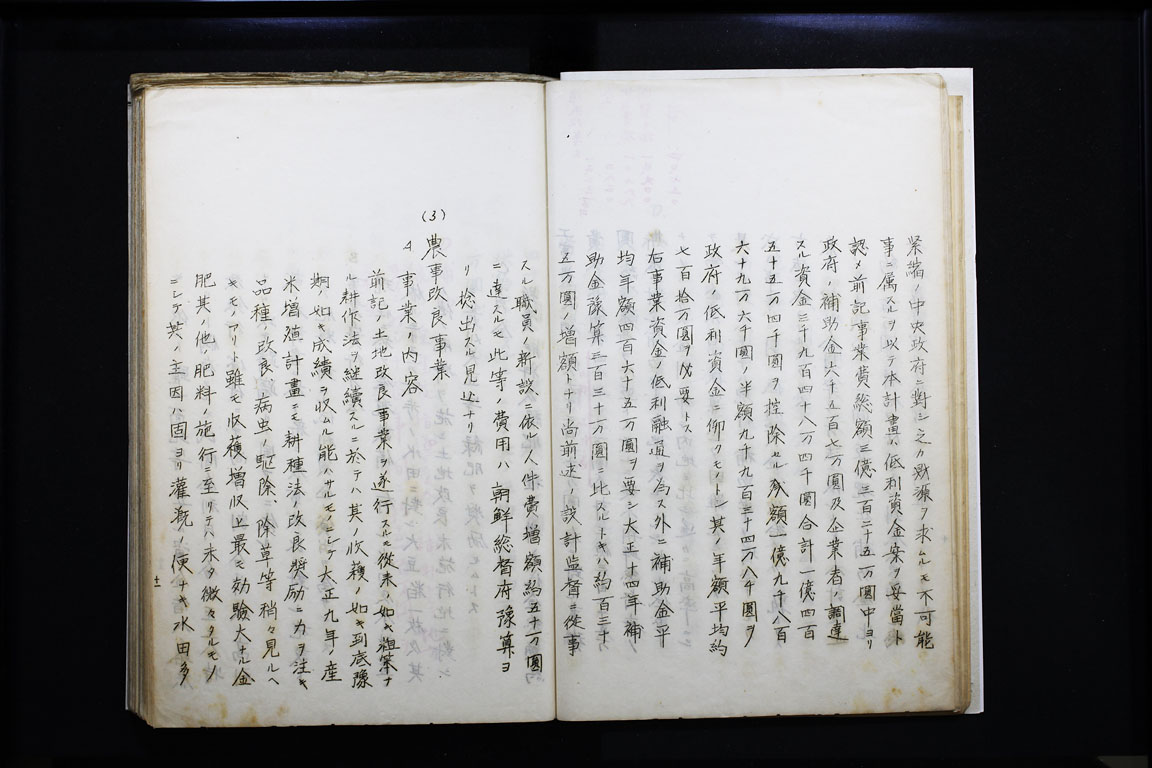 緊縮ノ中央政府ニ對シ之カ財源ヲ求ムルモ不可能
事ニ属スルヲ以テ本計畫ハ低利資金案ヲ妥當ト
認メ前記事業費総額三億三百二十五万圓中ヨリ
政府ノ補助金六千五百七万圓及企業者ノ調達
スル資金三千九百四十八万四千圓合計一億四百
五十五万四千圓ヲ控除セル残額一億九千八百
六十九万六千圓ノ半額九千九百三十四万八千圓ヲ
政府ノ低利資金ニ仰クモノトシ其ノ年額平均約
七百拾万圓ヲ必要トス
右事業資金ノ低利融通ヲ為ス外ニ補助金平
均年額四百六十五万圓ヲ要シ大正十四年補
助金豫算三百三十万圓ニ比スルトキハ約百三十
五万圓ノ増額トナリ尚前述ノ設計監督ニ從事
スル職員ノ新設ニ依ル人件費増額約五十万圓
ニ達スルモ此等ノ費用ハ朝鮮総督府豫算ヨ
リ捻出スル見込ナリ
(3) 農事改良事業
A 事業ノ内容
前記ノ土地改良事業ヲ遂行スルモ從来ノ如キ粗笨ナ
ル耕作法ヲ継續スルニ於テハ其ノ收穫ノ如キ到底豫
期ノ如キ成績ヲ收ムル能ハサルモノニシテ大正九年ノ産
米増殖計畫ニモ耕種法ノ改良奨励ニ力ヲ注キ
品種ノ改良病虫ノ駆除、除草等稍々見ルヘ
キモノアリト雖モ收穫増収上最モ効驗大ナル金
肥其ノ他ノ肥料ノ施行ニ至リテハ未タ微々タルモノ
ニシテ其ノ主因ハ固ヨリ灌漑ノ便ナキ水田多
十一